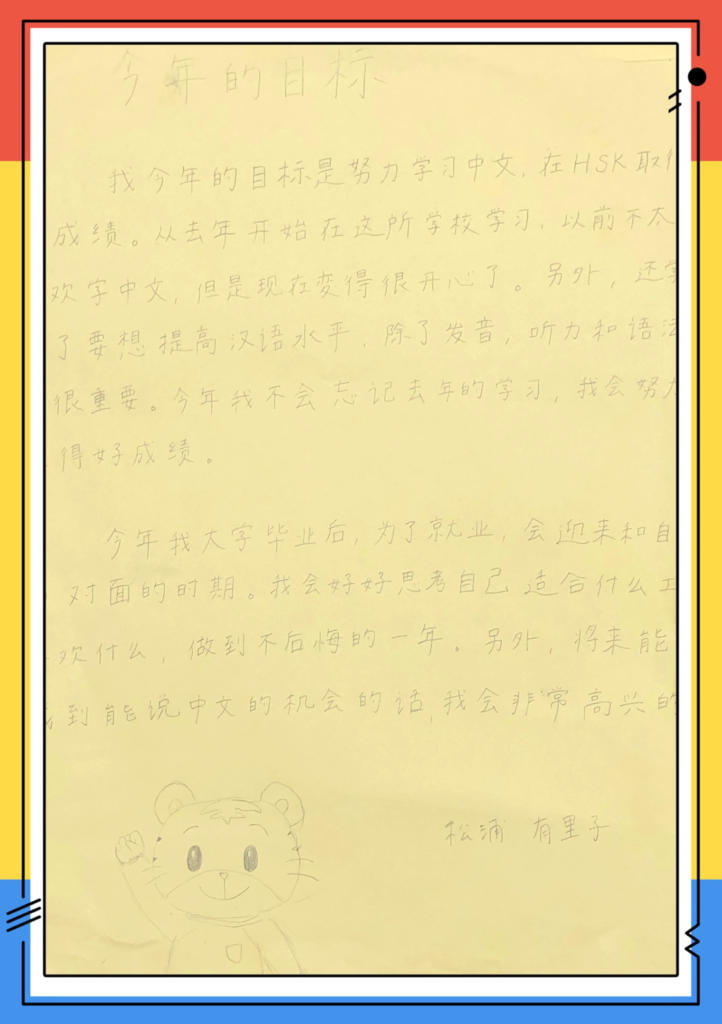 今年的目标
我今年的目标是努力学习中文,在HSK取
成绩。从去年开始在这所学校学习,以前不太
欢字中文,但是现在变得很开心了。另外,还学
了要想提高汉语水平,除了发音,听力和语法
很重要。今年我不会忘记去年的学习,我会努力
得好成绩。
今年我大字毕业后,为了就业,会迎来和自
对面的时期。我会好好思考自己适合什么工
欢什么,做到不后悔的一年。另外,将来能
到能说中文的机会的话,我会非常高兴的
松浦 有里子